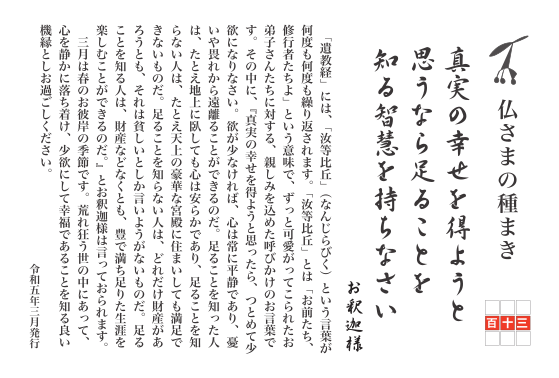 仏さまの種まき
百十三
真実の幸せを得ようと
思うなら足ることを
知る智慧を持ちなさい
お釈迦様
「遺教経」には、「汝等比丘」（なんじらびく）という言葉が
何度も何度も繰り返されます。「汝等比丘」とは「お前たち、
修行者たちよ」という意味で、ずっと可愛がってこられたお
弟子さんたちに対する、親しみを込めた呼びかけのお言葉で
す。その中に、『真実の幸せを得ようと思ったら、つとめて少
欲になりなさい。欲が少なければ、心は常に平静であり、憂
いや畏れから遠離ることができるのだ。足ることを知った人
は、たとえ地上に臥しても心は安らかであり、足ることを知
らない人は、たとえ天上の豪華な宮殿に住まいしても満足で
きないものだ。足ることを知らない人は、どれだけ財産があ
ろうとも、それは貧しいとしか言いようがないものだ。足る
ことを知る人は、財産などなくとも、豊で満ち足りた生涯を
楽しむことができるのだ。』とお釈迦様は言っておられます。
三月は春のお彼岸の季節です。荒れ狂う世の中にあって、
心を静かに落ち着け、少欲にして幸福であることを知る良い
機縁としお過ごしください。
令和五年三月発行